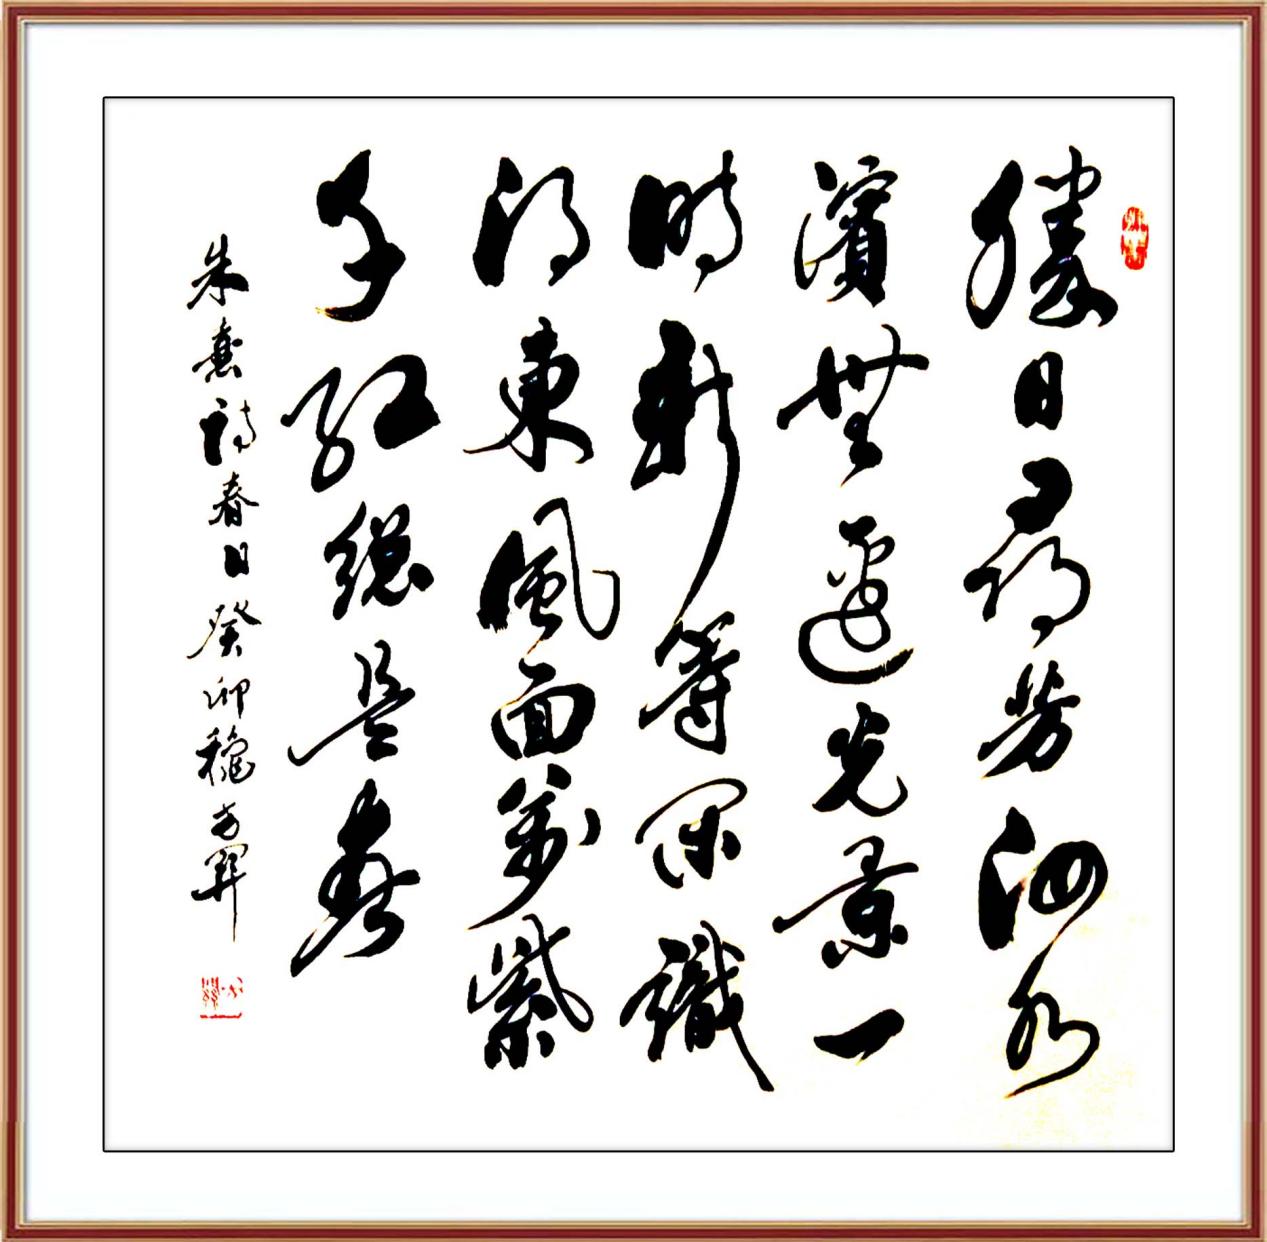 勝日尋芳泗水
濱無邊光景一
時新等閑識
得東風面萬紫
千紅總是春
朱熹詩春日癸卯穐